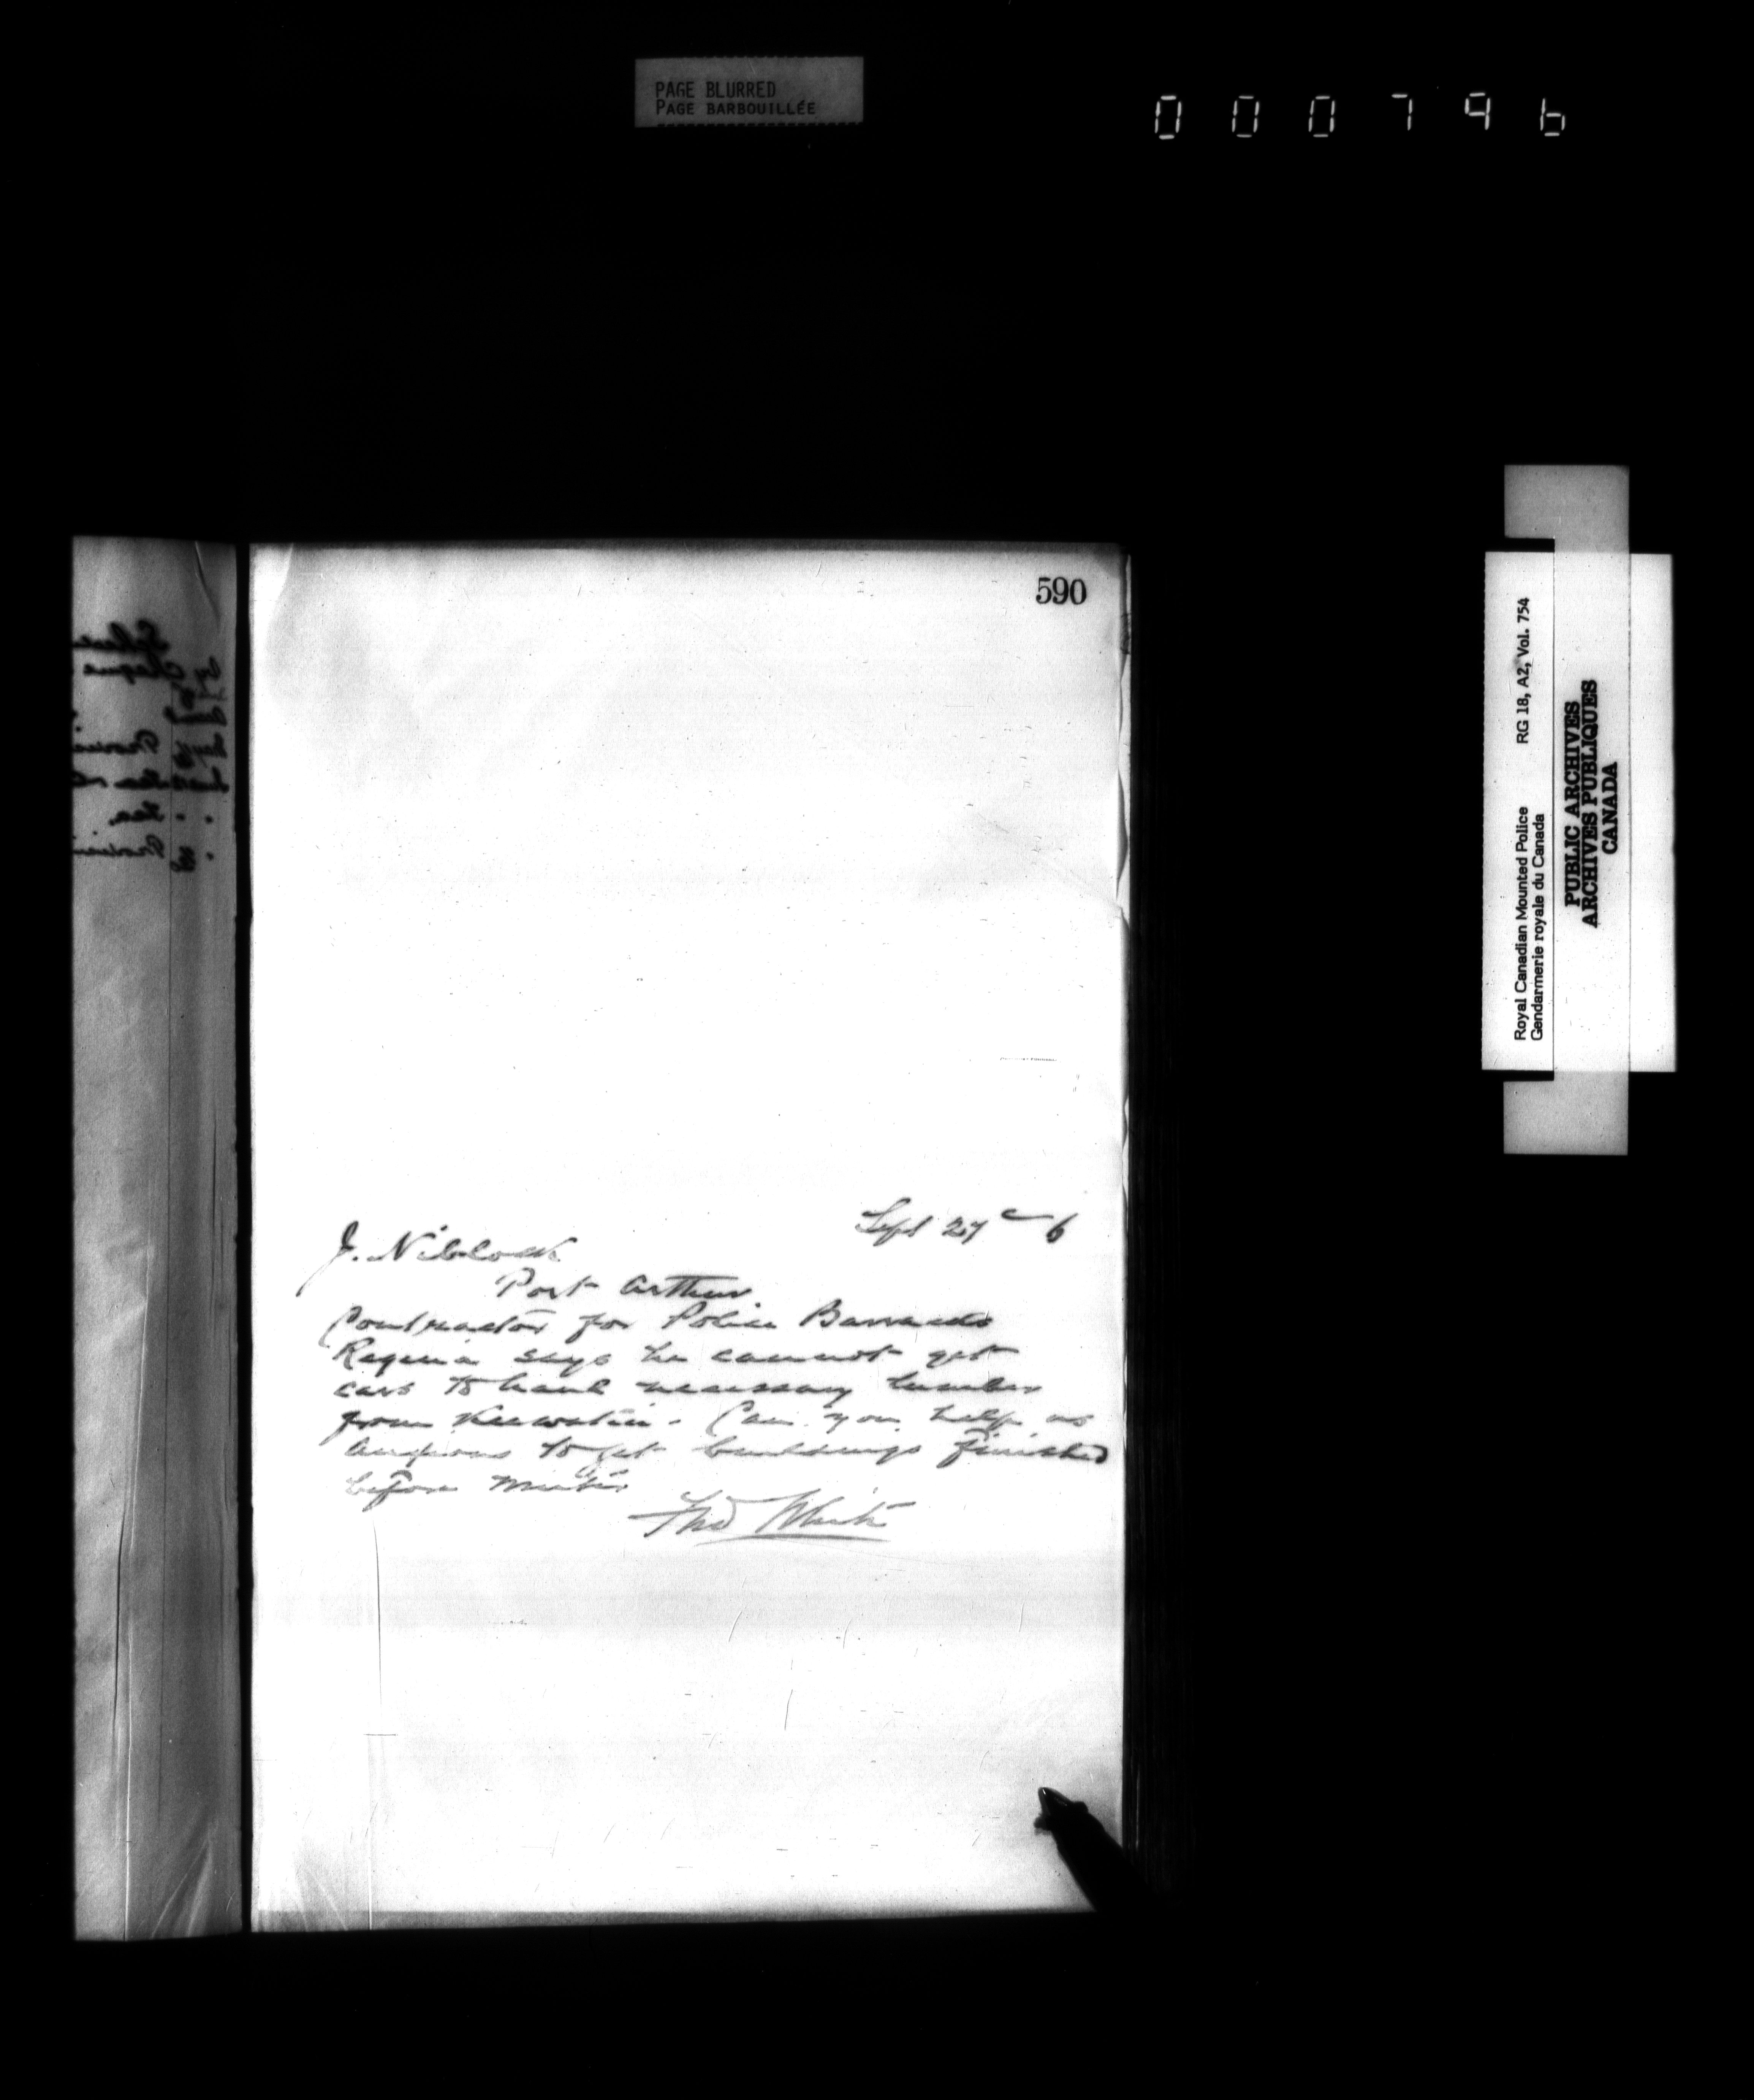 PAGE BLURRED
PAGE BARBOUILLÉE
000796
590
Sept 27 6
J. Niblock
Port Arthur
Contractor for Police Barracks
Regina says he cannot get
cars to haul necessary lumber
from Keewatin. Can you help us
anxious to get buildings finished
before winter
Fred White
Royal Canadian Mounted Police RG 18, A2, Vol. 754
Gendarmerie royale du Canada
PUBLIC ARCHIVES
ARCHIVES PUBLIQUES
CANADA